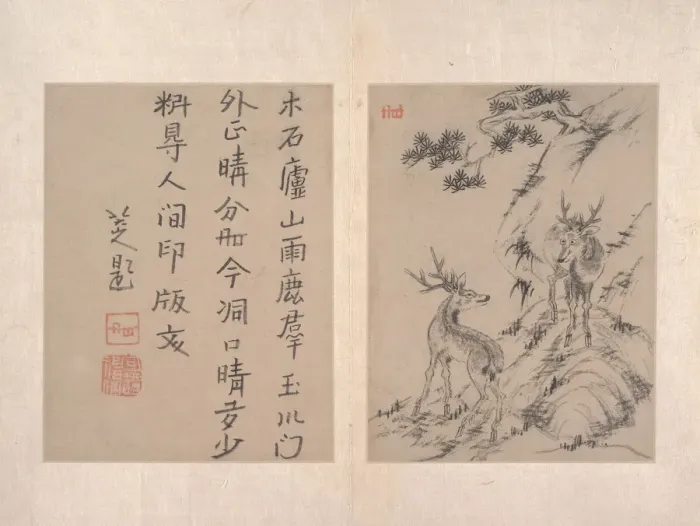 木石廬山雨鹿羣玉川门
外正晴分冊今洞口晴多少
料尋人间印版
題